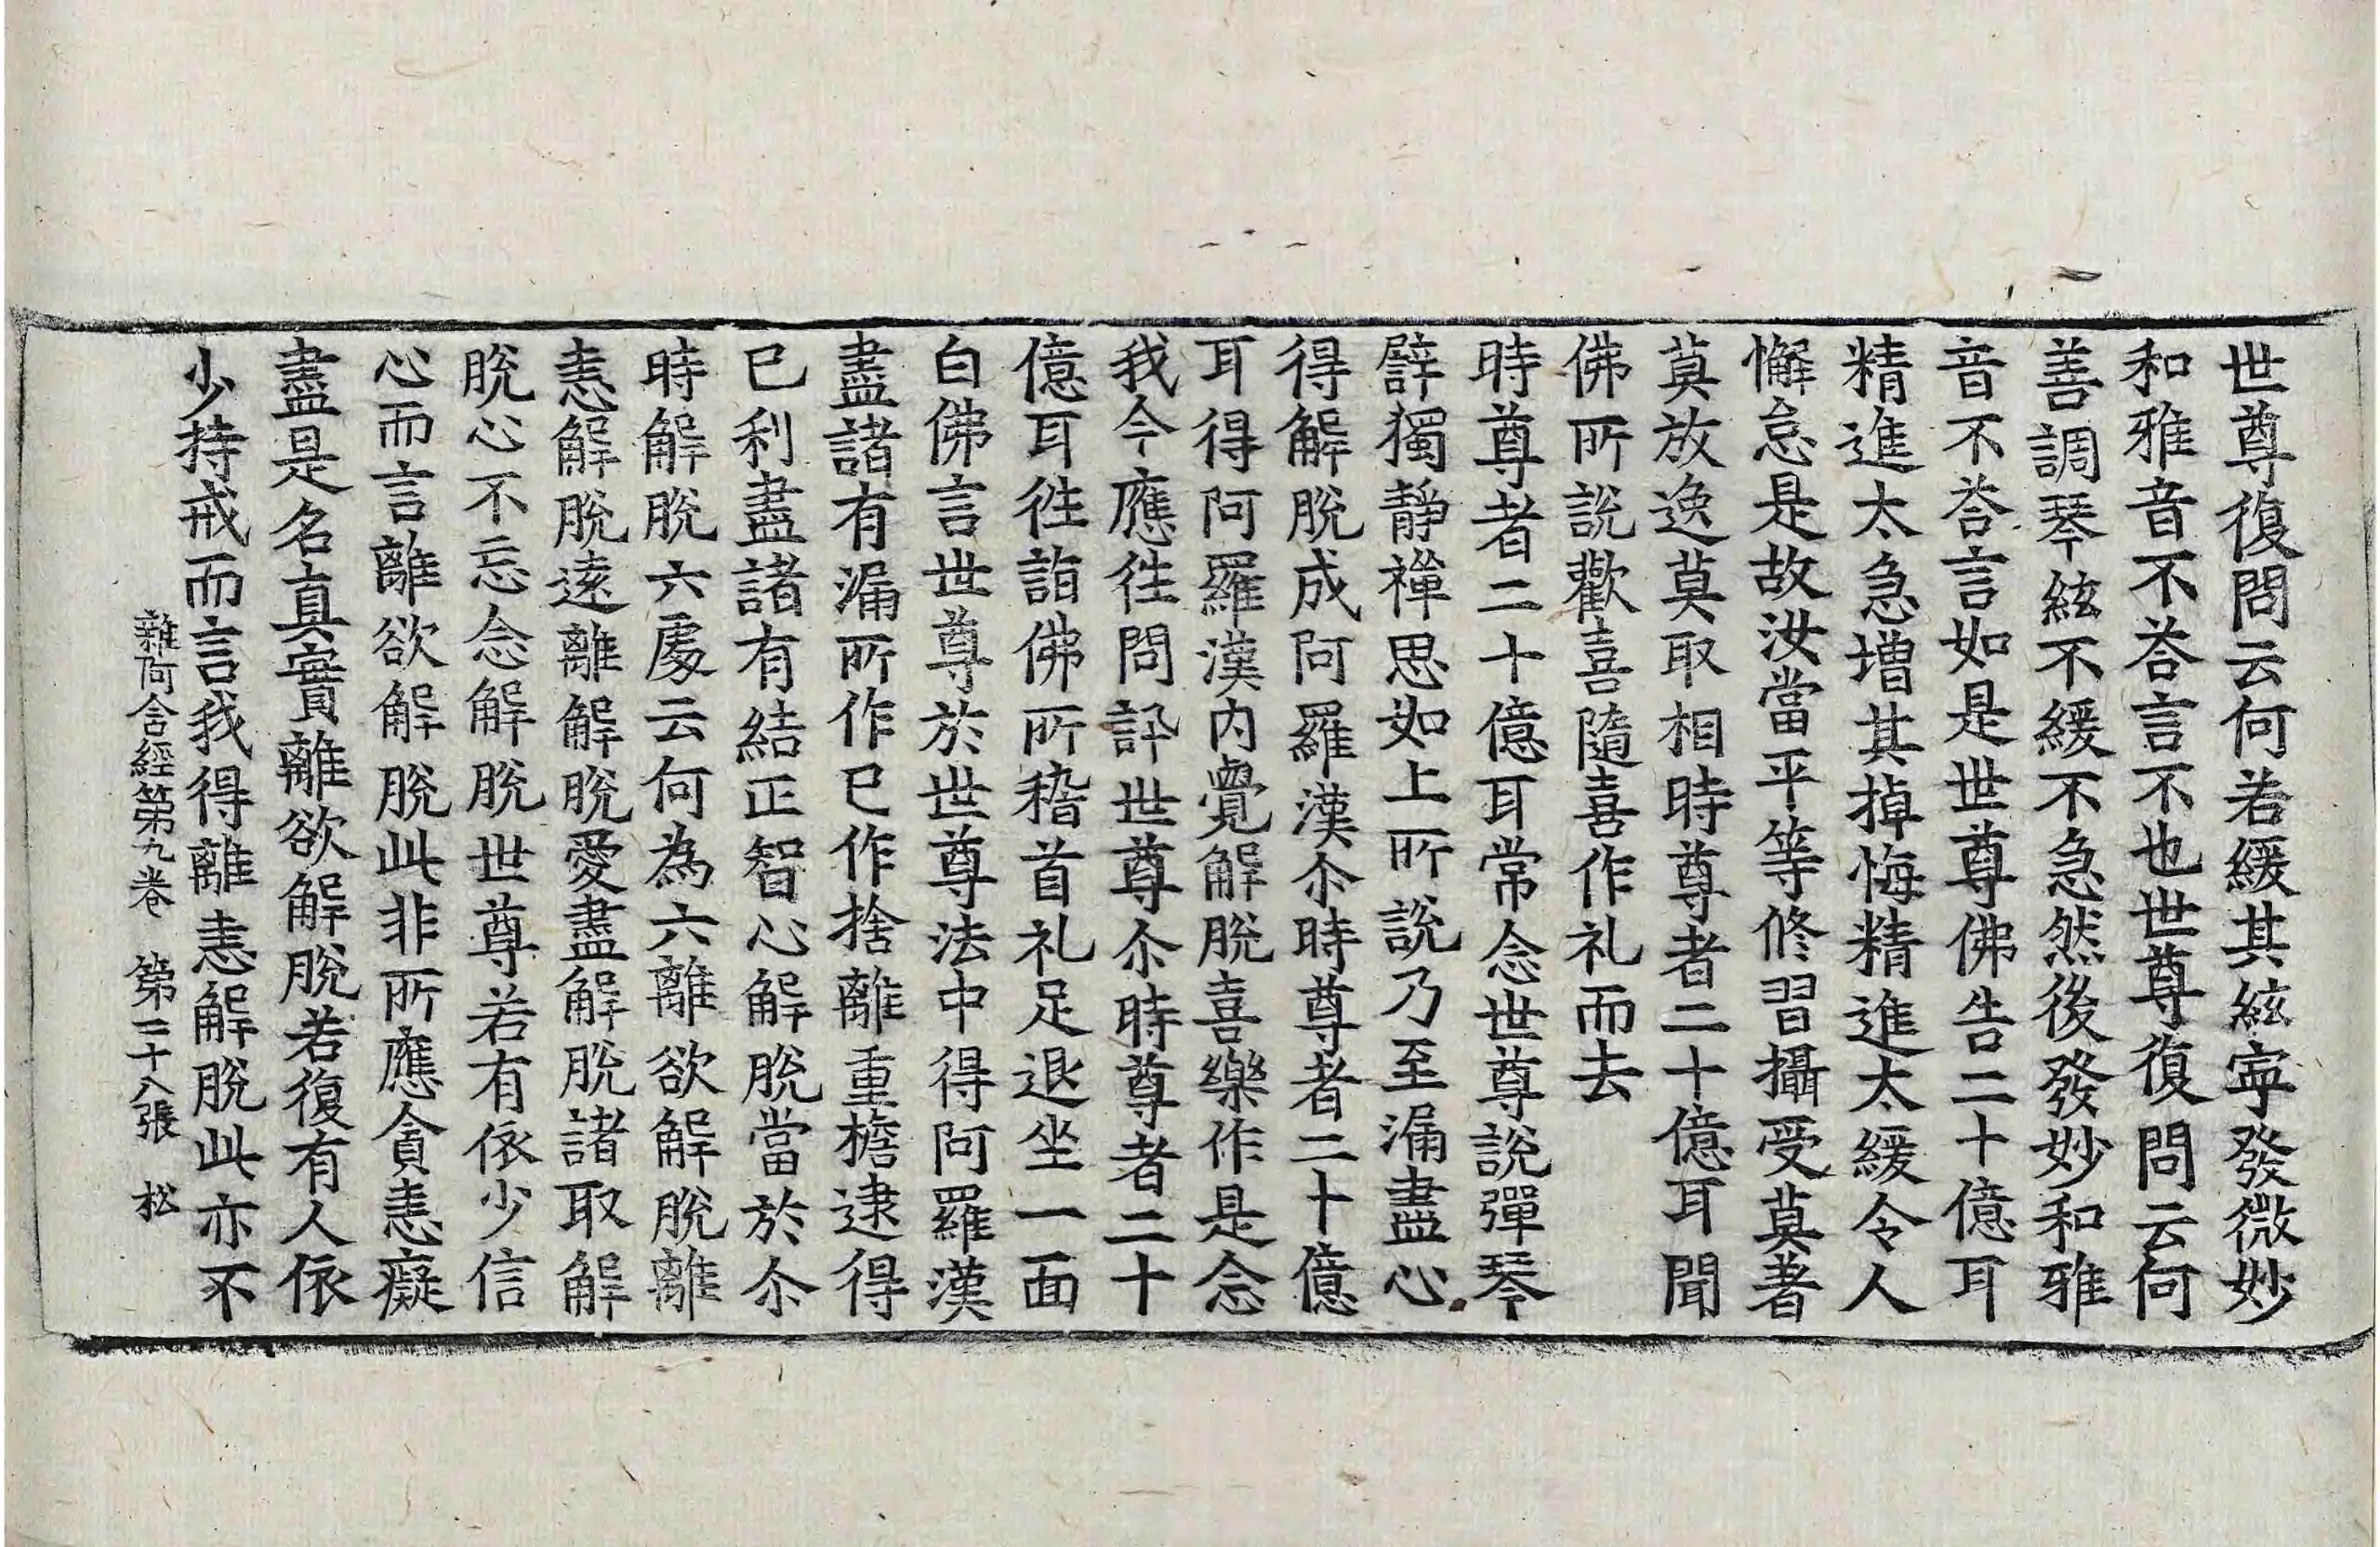 世尊復問云何若緩其絃寕發微妙
和雅音不荅言不也世尊復問云何
善調琴絃不緩不急然後發妙和雅
音不荅言如是世尊佛告二十億耳
精進太急增其掉悔精進太緩令人
懈怠是故汝當平等修習攝受莫著
莫放逸莫取相時尊者二十億耳聞
佛所說歡喜隨喜作礼而去
時尊者二十億耳常念世尊說彈琴
譬獨靜禪思如上所說乃至漏盡心
得解脫成阿羅漢尒時尊者二十億
耳得阿羅漢內覺解脫喜樂作是念
我今應徃問訊世尊尒時尊者二十
億耳徃詣佛所稽首礼足退坐一面
白佛言世尊於世尊法中得阿羅漢
盡諸有漏所作已作捨離重擔逮得
已利盡諸有結正智心解脫當於尒
時解脫六處云何為六離欲解脫離
恚解脫遠離解脫愛盡解脫諸取解
脫心不忘念解脫世尊若有依少信
心而言離欲解脫此非所應貪恚癡
盡是名真實離欲解脫若復有人依
少持戒而言我得離恚解脫此亦不
雜阿含經第九卷 第二十八張 松